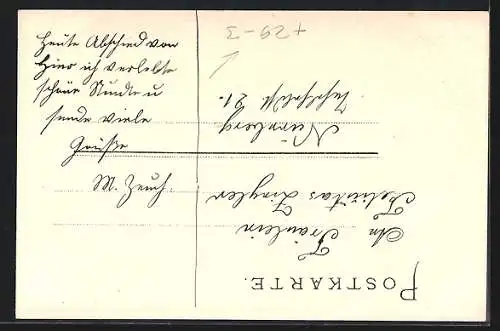 Heute Abschied von
hier ich verlebte
schöne Stunden u
sende viele
Grüße
M. Zeuch.
POSTKARTE.
An
Fräulein
Felicitas Ziegler
Nürnberg
21.
+29-3